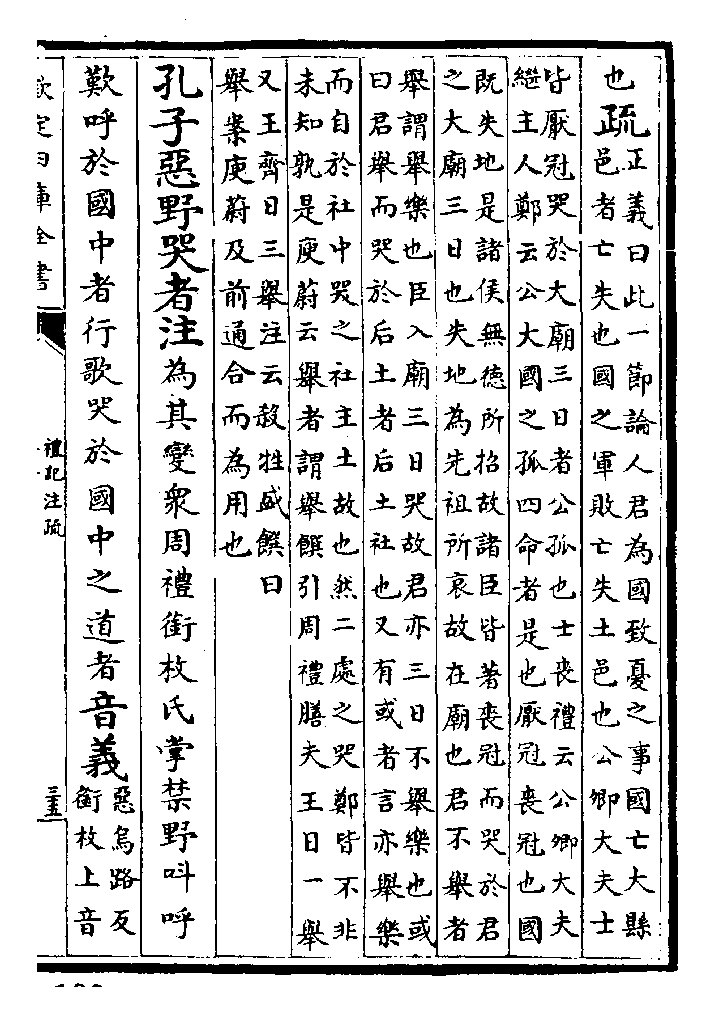 也疏正義曰此一節論人君為國致憂之事國亡大縣
邑者亡失也國之軍敗亡失土邑也公卿大夫士
皆厭冠哭於大廟三日者公孤也士喪禮云公卿大夫
繼主人鄭云公大國之孤四命者是也厭冠喪冠也國
既失地是諸侯無德所招故諸臣皆著喪冠而哭於君
之大廟三日也失地為先祖所哀故在廟也君不舉者
舉謂舉樂也臣入廟三日哭故君亦三日不舉樂也或
曰君舉而哭於后土者后土社也又有或者言亦舉樂
而自於社中哭之社主土故也然二處之哭鄭皆不非
未知孰是庾蔚云舉者謂舉饌引周禮膳夫王日一舉
又王齊日三舉注云殺牲盛饌曰
舉案庾蔚及前通合而為用也
孔子惡野哭者注為其變衆周禮銜枚氏掌禁野叫呼
歎呼於國中者行歌哭於國中之道者音義惡烏路反
銜枚上音
欽定四庫全書
禮記注疏
三五